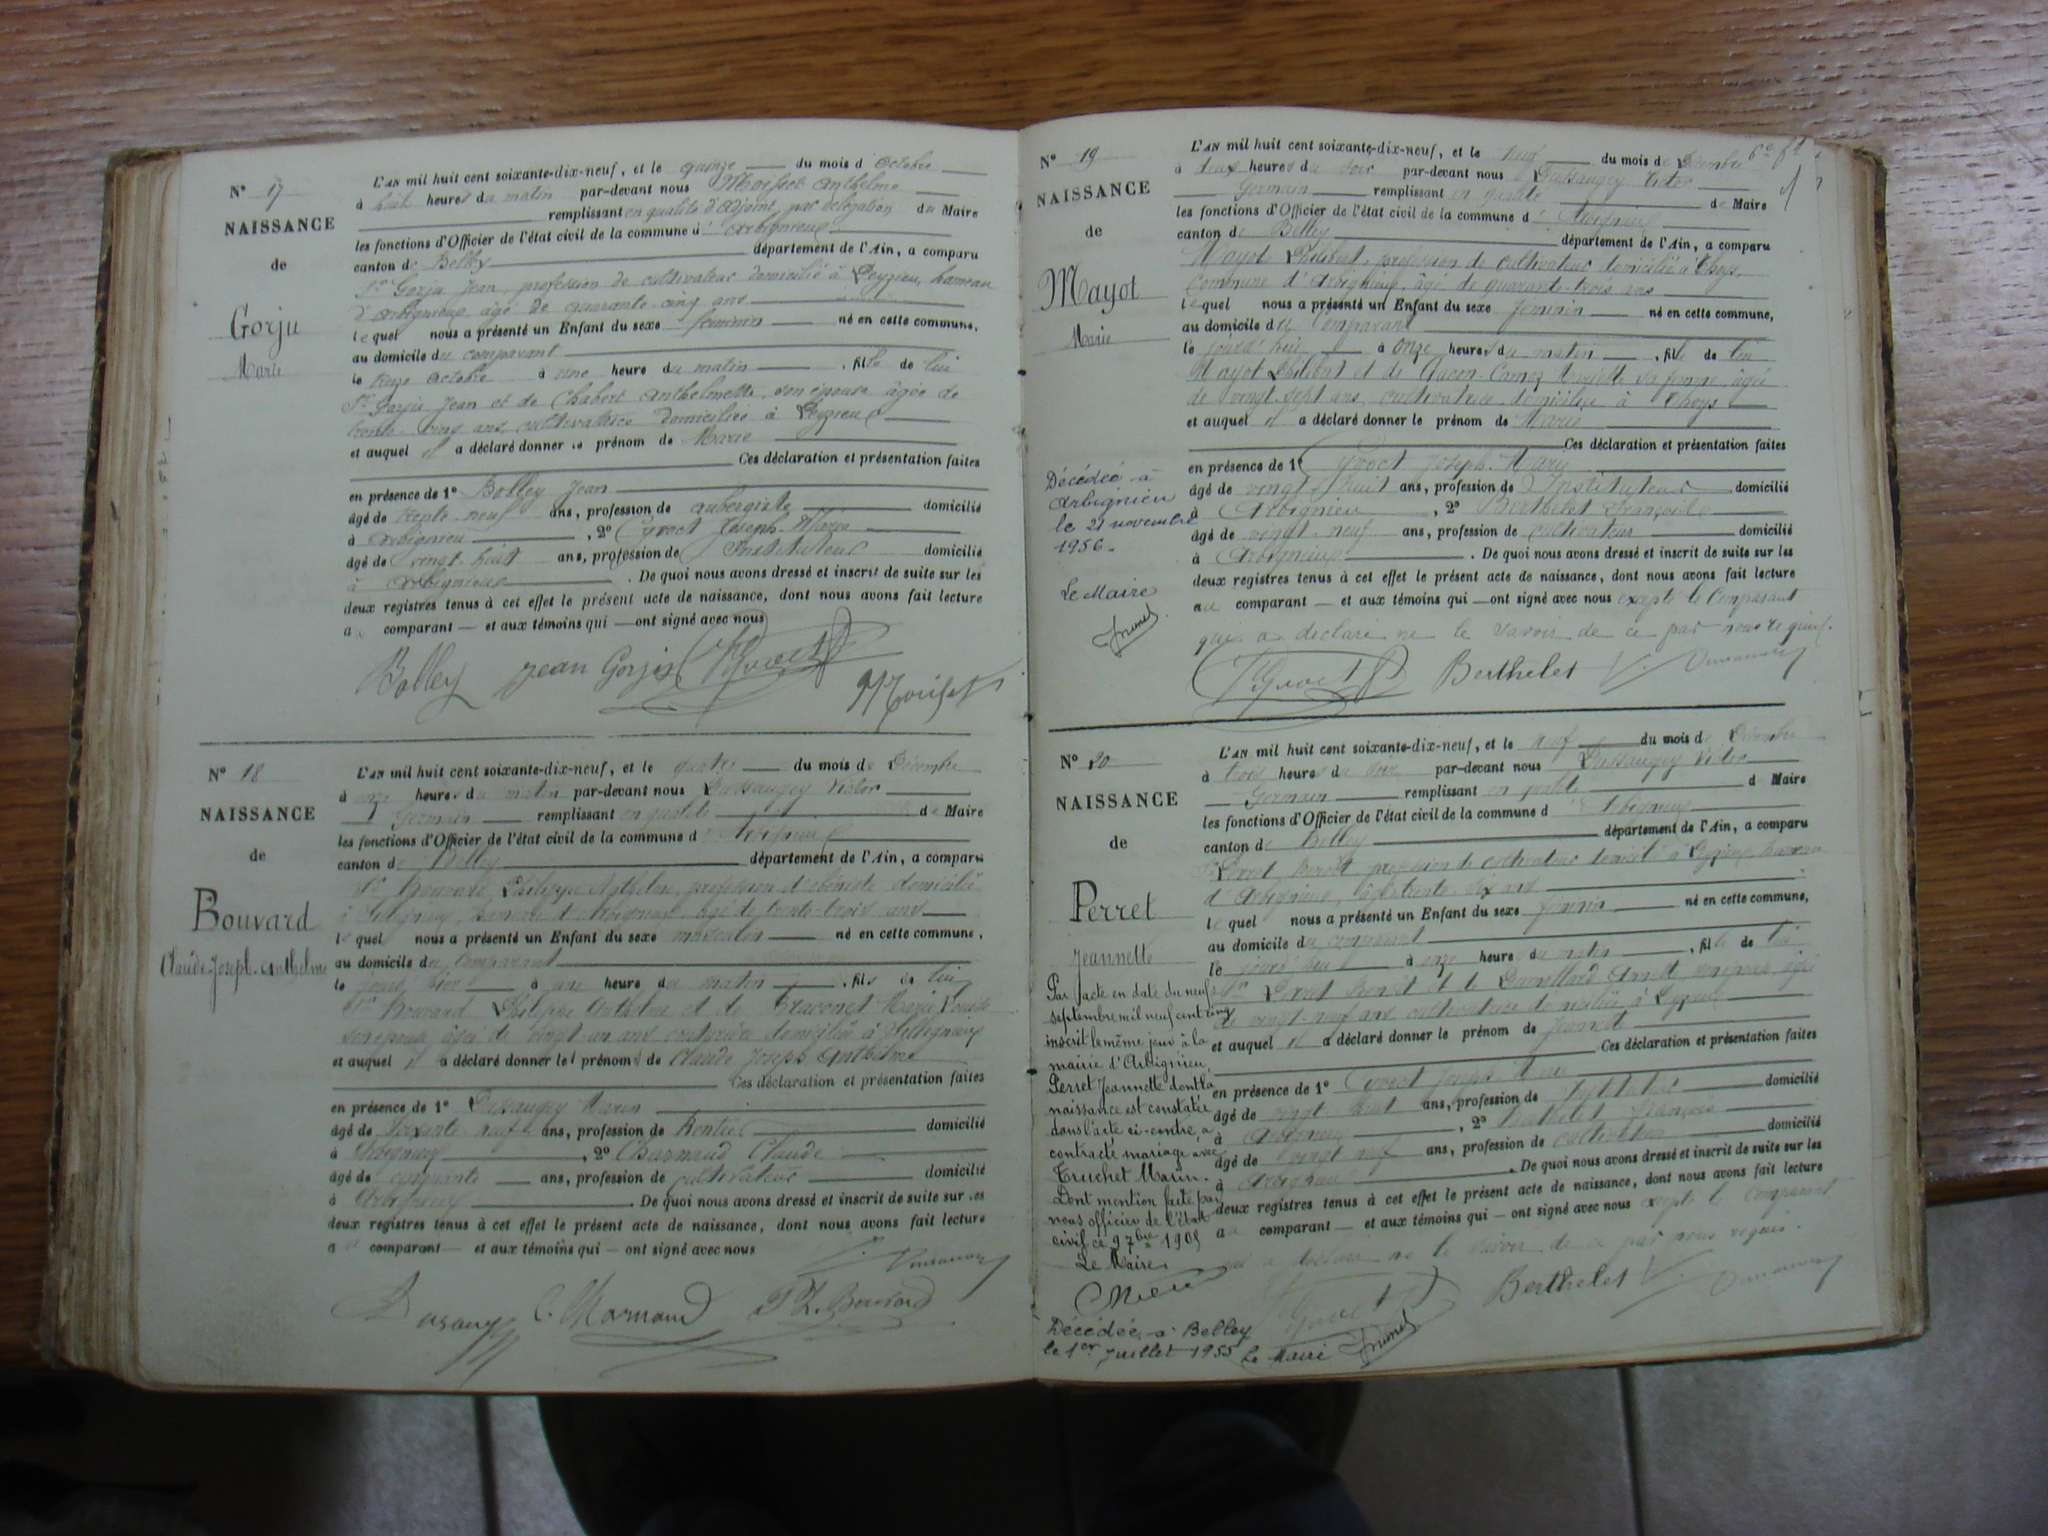 N° 17
NAISSANCE
de
Gorju
Marie
L'AN mil huit cent soixante-dix-neuf, et le quinze du mois d'octobre
à huit heures du matin par-devant nous Anthelme
remplissant en qualité d'adjoint par délégation du Maire
les fonctions d'Officier de l'état civil de la commune d'Arbignieu
canton de Belley département de l'Ain, a comparu
Sr Gorju Jean, profession de cultivateur domicilié à Peyzieu, hameau
d'Arbignieu âgé de quarante cinq ans
lequel nous a présenté un Enfant du sexe féminin né en cette commune,
au domicile du comparant
le treize octobre à une heure du matin, fille de lui
Sr Gorju Jean et de Chabert Anthelmette, son épouse âgée de
trente-cinq ans, cultivatrice domiciliée à Peyzieu
et auquel il a déclaré donner le prénom de Marie
Ces déclaration et présentation faites
en présence de 1° Bolley Jean
âgé de trente-neuf ans, profession de aubergiste domicilié
à Arbignieu, 2° Joseph Marie
âgé de vingt-huit ans, profession de Instituteur domicilié
à Arbignieu. De quoi nous avons dressé et inscrit de suite sur les
deux registres tenus à cet effet le présent acte de naissance, dont nous avons fait lecture
au comparant et aux témoins qui ont signé avec nous
Bolley Jean Gorju
N° 18
NAISSANCE
de
Bouvard
Claude-Joseph-Anthelme
L'AN mil huit cent soixante-dix-neuf, et le quatre du mois de Décembre
à onze heures du matin par-devant nous Dussaugey Victor
Germain remplissant en qualité de Maire
les fonctions d'Officier de l'état civil de la commune d'Arbignieu
canton de Belley département de l'Ain, a comparu
Sr Bouvard Philippe Anthelme, profession d'ébéniste domicilié
à hameau d'Arbignieu âgé de trente-trois ans
lequel nous a présenté un Enfant du sexe masculin né en cette commune,
au domicile du comparant
le à une heure du matin, fils de lui
Sr Bouvard Philippe Anthelme et de Marie Louise
son épouse âgée de vingt-un ans couturière domiciliée à
et auquel il a déclaré donner les prénoms de Claude Joseph Anthelme
Ces déclaration et présentation faites
en présence de 1° Dussaugey Marin
âgé de soixante-neuf ans, profession de Rentier domicilié
à Arbignieu, 2° Charmand Claude
âgé de cinquante ans, profession de cultivateur domicilié
à Arbignieu. De quoi nous avons dressé et inscrit de suite sur les
deux registres tenus à cet effet le présent acte de naissance, dont nous avons fait lecture
au comparant et aux témoins qui ont signé avec nous
N° 19
NAISSANCE
de
Mayot
Marie
L'AN mil huit cent soixante-dix-neuf, et le neuf du mois de Décembre
à deux heures du soir par-devant nous Dussaugey Victor
Germain remplissant en qualité de Maire
les fonctions d'Officier de l'état civil de la commune d'Arbignieu
canton de Belley département de l'Ain, a comparu
Mayot Philibert, profession de cultivateur domicilié à Thoys,
commune d'Arbignieu, âgé de quarante-trois ans
lequel nous a présenté un Enfant du sexe féminin né en cette commune,
au domicile du comparant
le jourd'hui à onze heures du matin, fille de lui
Mayot Philibert et de sa femme, âgée
de vingt-sept ans, cultivatrice domiciliée à Thoys
et auquel il a déclaré donner le prénom de Marie
Ces déclaration et présentation faites
en présence de 1° Joseph Marie
âgé de vingt-huit ans, profession de Instituteur domicilié
à Arbignieu, 2° Berthelet François
âgé de vingt-neuf ans, profession de cultivateur domicilié
à Arbignieu. De quoi nous avons dressé et inscrit de suite sur les
deux registres tenus à cet effet le présent acte de naissance, dont nous avons fait lecture
au comparant et aux témoins qui ont signé avec nous excepté le comparant
qui a déclaré ne le savoir de ce par nous requis.
Berthelet
Décédée à
Arbignieu
le 21 novembre
1956.
Le Maire
N° 20
NAISSANCE
de
Perret
Jeannette
L'AN mil huit cent soixante-dix-neuf, et le neuf du mois de Décembre
à trois heures du soir par-devant nous Dussaugey Victor
Germain remplissant en qualité d Maire
les fonctions d'Officier de l'état civil de la commune d'Arbignieu
canton de Belley département de l'Ain, a comparu
Sr Perret Benoît, profession de cultivateur domicilié à Peyzieu, hameau
d'Arbignieu, âgé de trente-six ans
lequel nous a présenté un Enfant du sexe féminin né en cette commune,
au domicile du comparant
le jourd'hui à onze heures du matin, fille de lui
Sr Perret Benoît et de son épouse, âgée
de vingt-neuf ans cultivatrice domiciliée à Peyzieu
et auquel il a déclaré donner le prénom de Jeannette
Ces déclaration et présentation faites
en présence de 1° Joseph Marie
âgé de vingt-huit ans, profession de Instituteur domicilié
à Arbignieu, 2° Berthelet François
âgé de vingt-neuf ans, profession de cultivateur domicilié
à Arbignieu. De quoi nous avons dressé et inscrit de suite sur les
deux registres tenus à cet effet le présent acte de naissance, dont nous avons fait lecture
au comparant et aux témoins qui ont signé avec nous excepté le comparant
qui a déclaré ne le savoir de ce par nous requis.
Berthelet
Par acte en date du neuf
septembre mil neuf cent cinq
inscrit le même jour à la
mairie d'Arbignieu,
Perret Jeannette dont la
naissance est constatée
dans l'acte ci-contre, a
contracté mariage avec
Truchet Marin.
Dont mention faite par
nous officier de l'état
civil ce 9 7bre 1905
Le Maire
Décédée à Belley
le 1er Juillet 1955 Le Maire